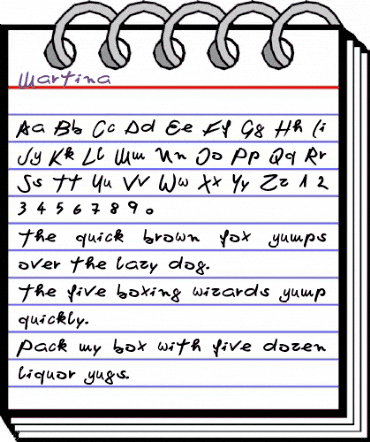 Martina
Aa Bb Cc Dd Ee Ff Gg Hh Ii
Jj Kk Ll Mm Nn Oo Pp Qq Rr
Ss Tt Uu Vv Ww Xx Yy Zz 1 2
3 4 5 6 7 8 9 0
The quick brown fox jumps
over the lazy dog.
The five boxing wizards jump
quickly.
Pack my box with five dozen
liquor jugs.